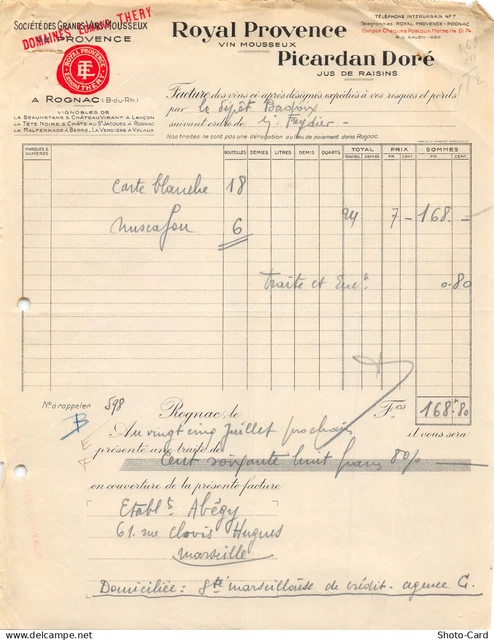 SOCIÉTÉ DES GRANDS VINS MOUSSEUX
DE PROVENCE
DOMAINES LOUIS THERY
ROYAL PROVENCE
A ROGNAC (B-du-Rh.)
VIGNOBLES DE
LA BEAUMETANE & CHÂTEAU VIRANT À LANÇON
LA TÊTE NOIRE & CHÂTEAU ST JACQUES À ROGNAC
LA MALFERNADE À BERRE, LA VERDIÈRE À VELAUX
Royal Provence
VIN MOUSSEUX
Picardan Doré
JUS DE RAISINS
TÉLÉPHONE INTERURBAIN N° 7
Télégrammes: ROYAL PROVENCE - ROGNAC
Compte Chèques Postaux Marseille 61 74
R.C. SALON 1650
Facture des vins ci-après désignés, expédiés à vos risques et périls
par le dépôt
suivant ordre de
Nos traites ne sont pas une dérogation au lieu de paiement dans Rognac
MARQUES & NUMÉROS BOUTEILLES DEMIES LITRES DEMIS QUARTS TOTAL PRIX SOMMES
BOUTEIL. DEMIES FR. CENT. FR. CENT.
Carte blanche 18
6
24 7 — 168. —
Traite et 0.80
N° à rappeler 598 Rognac, le Fcs 168.80
Au vingt cinq juillet prochain il vous sera
présenté une traite de Cent soixante huit francs 80/00
en couverture de la présente facture
Etabts Abégy
61. rue Clovis Hugues
Marseille
Domiciliée: Sté marseillaise de crédit - agence C.